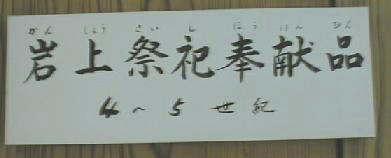 がん じょう さい し ほう けん ひん
岩上祭祀奉献品
4～5世紀